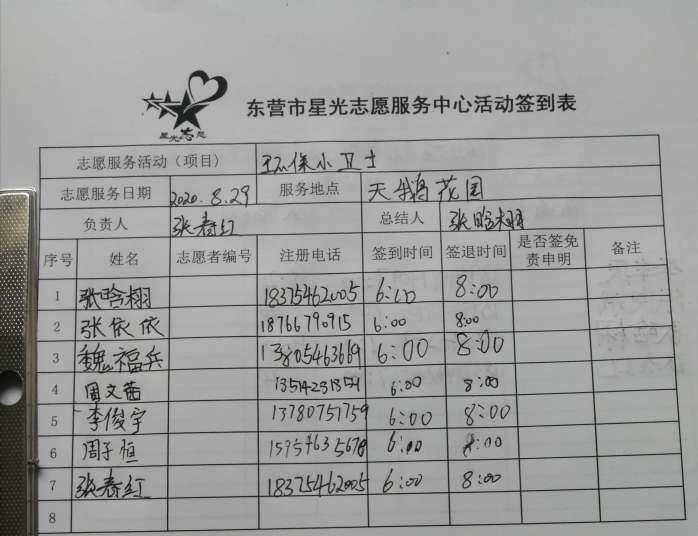 星光志愿
东营市星光志愿服务中心活动签到表
志愿服务活动（项目） 环保小卫士
志愿服务日期 2020.8.29 服务地点 天鹅花园
负责人 张春红 总结人 张晗栩
序号 姓名 志愿者编号 注册电话 签到时间 签退时间 是否签免责申明 备注
1 张晗栩 18375462005 6:00 8:00
2 张依依 18766790915 6:00 8:00
3 魏福兵 13805463669 6:00 8:00
4 周文茜 6:00 8:00
5 李俊宇 13780757759 6:00 8:00
6 周子恒 15954635678 6:00 8:00
7 张春红 18375462005 6:00 8:00
8